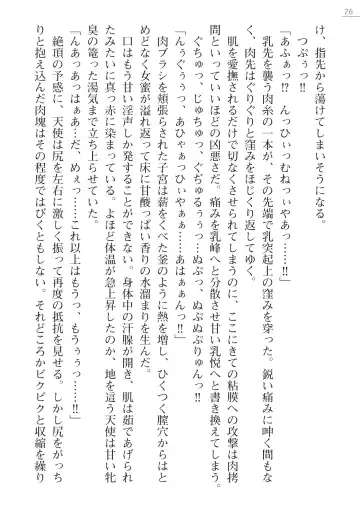 26
け、指先から蕩けてしまいそうになる。
つぷぅっ‼
「あふぁっ⁉　んっひぃっむねっぃやあっ……‼」
乳先を襲う肉糸の一本が、その先端で乳突起上の窪みを穿った。鋭い痛みに呻く間もなく、肉先はぐりぐりと窪みをほじくり返してゆく。
肌を愛撫されるだけで切なくさせられてしまうのに、ここにきての粘膜への攻撃は肉拷問と言っていいほどの凶悪さだ。痛みを乳峰へと分散させ甘い乳悦へと書き換えてしまう。
ぐちゅっ、じゅちゅっ、ぐぢゅるぅっ……ぬぷっ、ぬぷぬぷりゅんっ‼
「んっぅぐぅっ、あひゃぁっひぃやぁぁ……あはぁぁんっ‼」
肉ブラシを頬張らされた子宮は薪をくべた釜のように熱を増し、ひくつく膣穴からはとめどなく女蜜が溢れ返って床に甘酸っぱい香りの水溜まりを生んだ。
口はもう甘い淫声しか発することができない。身体中の汗腺が開き、肌は茹であげられたみたいに真っ赤に染まっている。よほど体温が急上昇したのか、地を這う天使は甘い牝臭の篭った湯気まで立ち上らせていた。
「んあっあっはぁあ…だ、めぇっ……これ以上はもうっ……‼」
絶頂の予感に、天使は尻を左右に激しく振って再度の抵抗を見せる。しかし尻をがっちりと抱え込んだ肉塊はその程度ではぴくともしない。それどころかビクビクと収縮を繰り